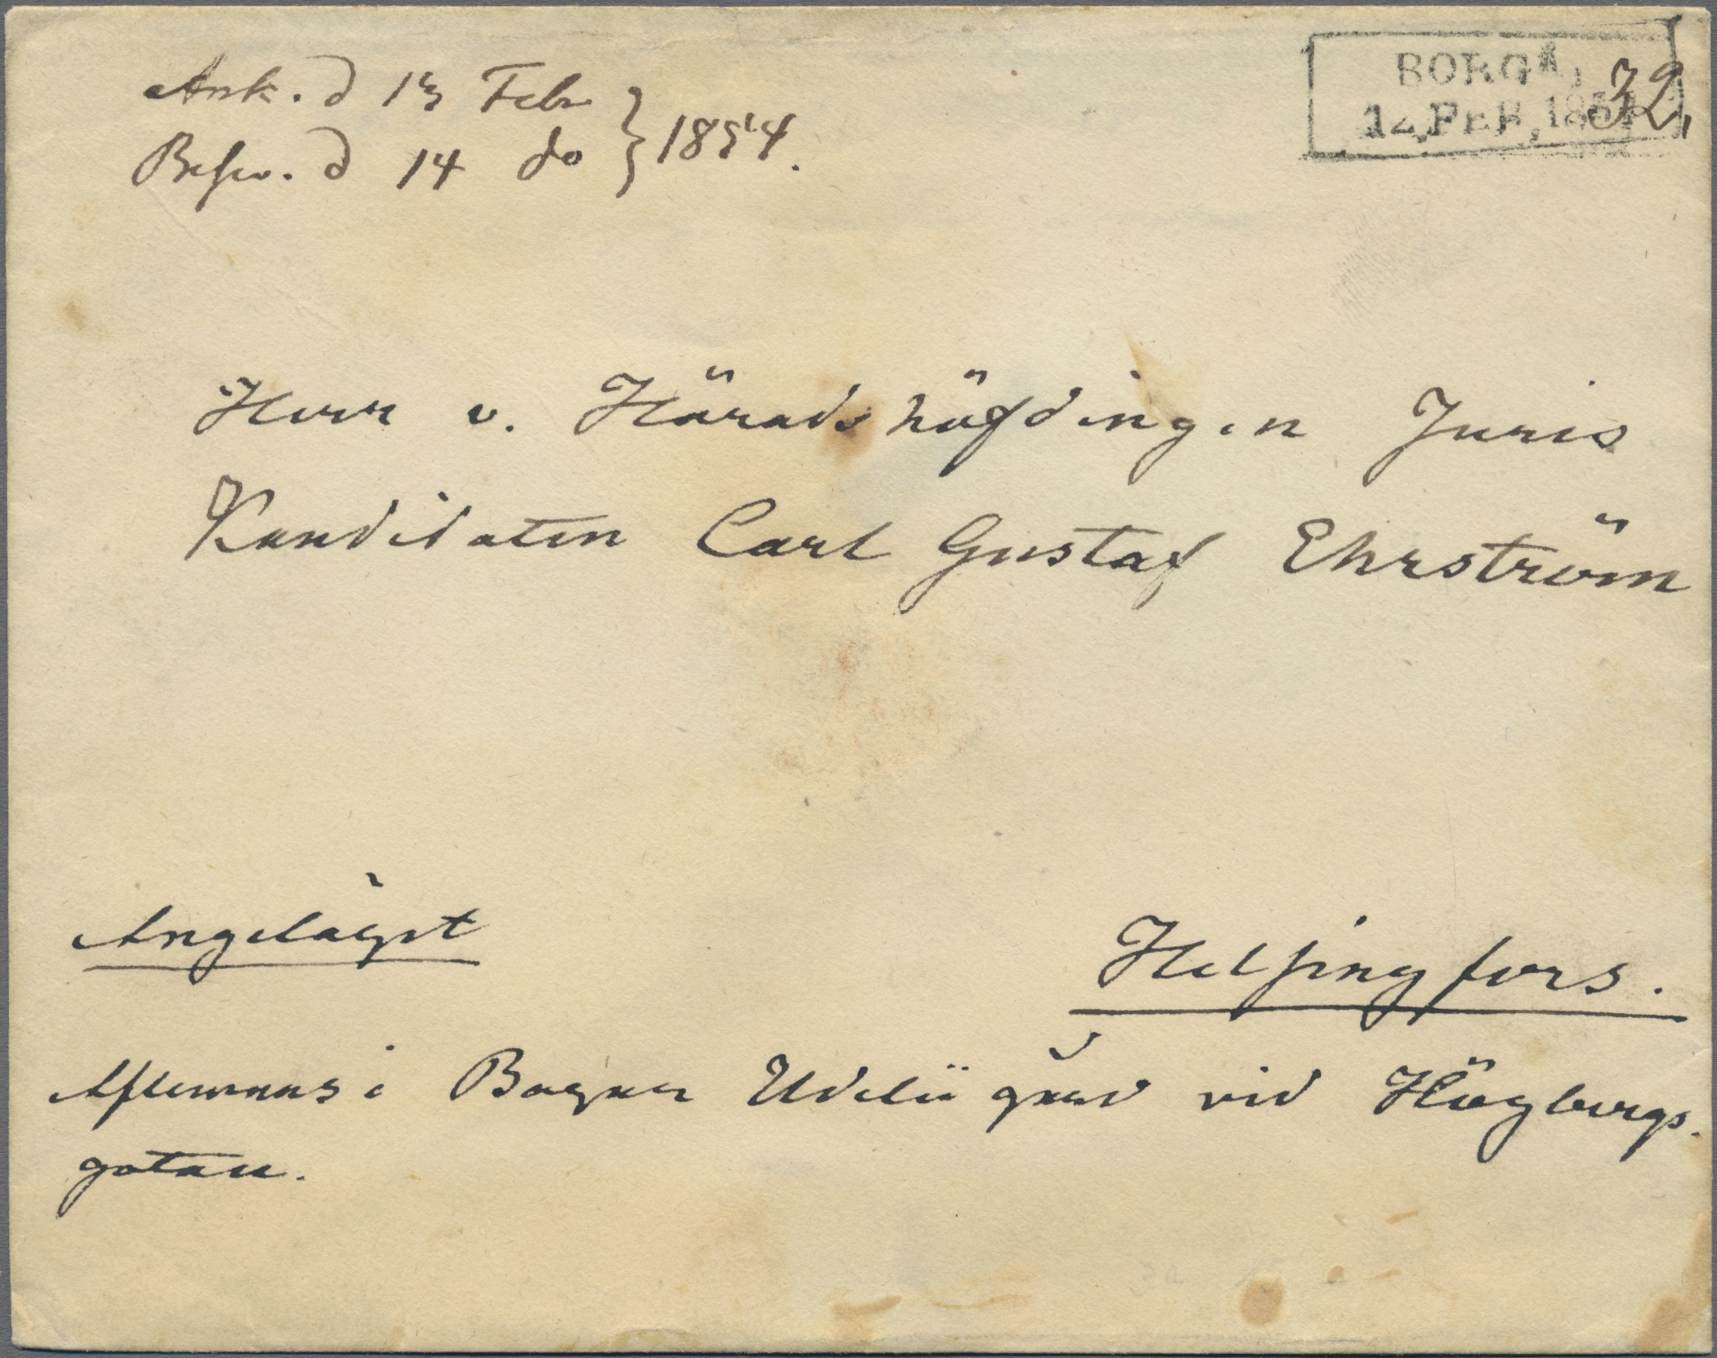 Ank. d 13 Febr } 1854.
Besv. d 14 do
BORGÅ,
12, FEB, 1854
32,
Herr v. Häradshöfdingen Juris
Kandidaten Carl Gustaf Ehrström
Angeläget
Helsingfors.
Aflemnas i Bagar Udelii gård vid Högbergs-
gatan.